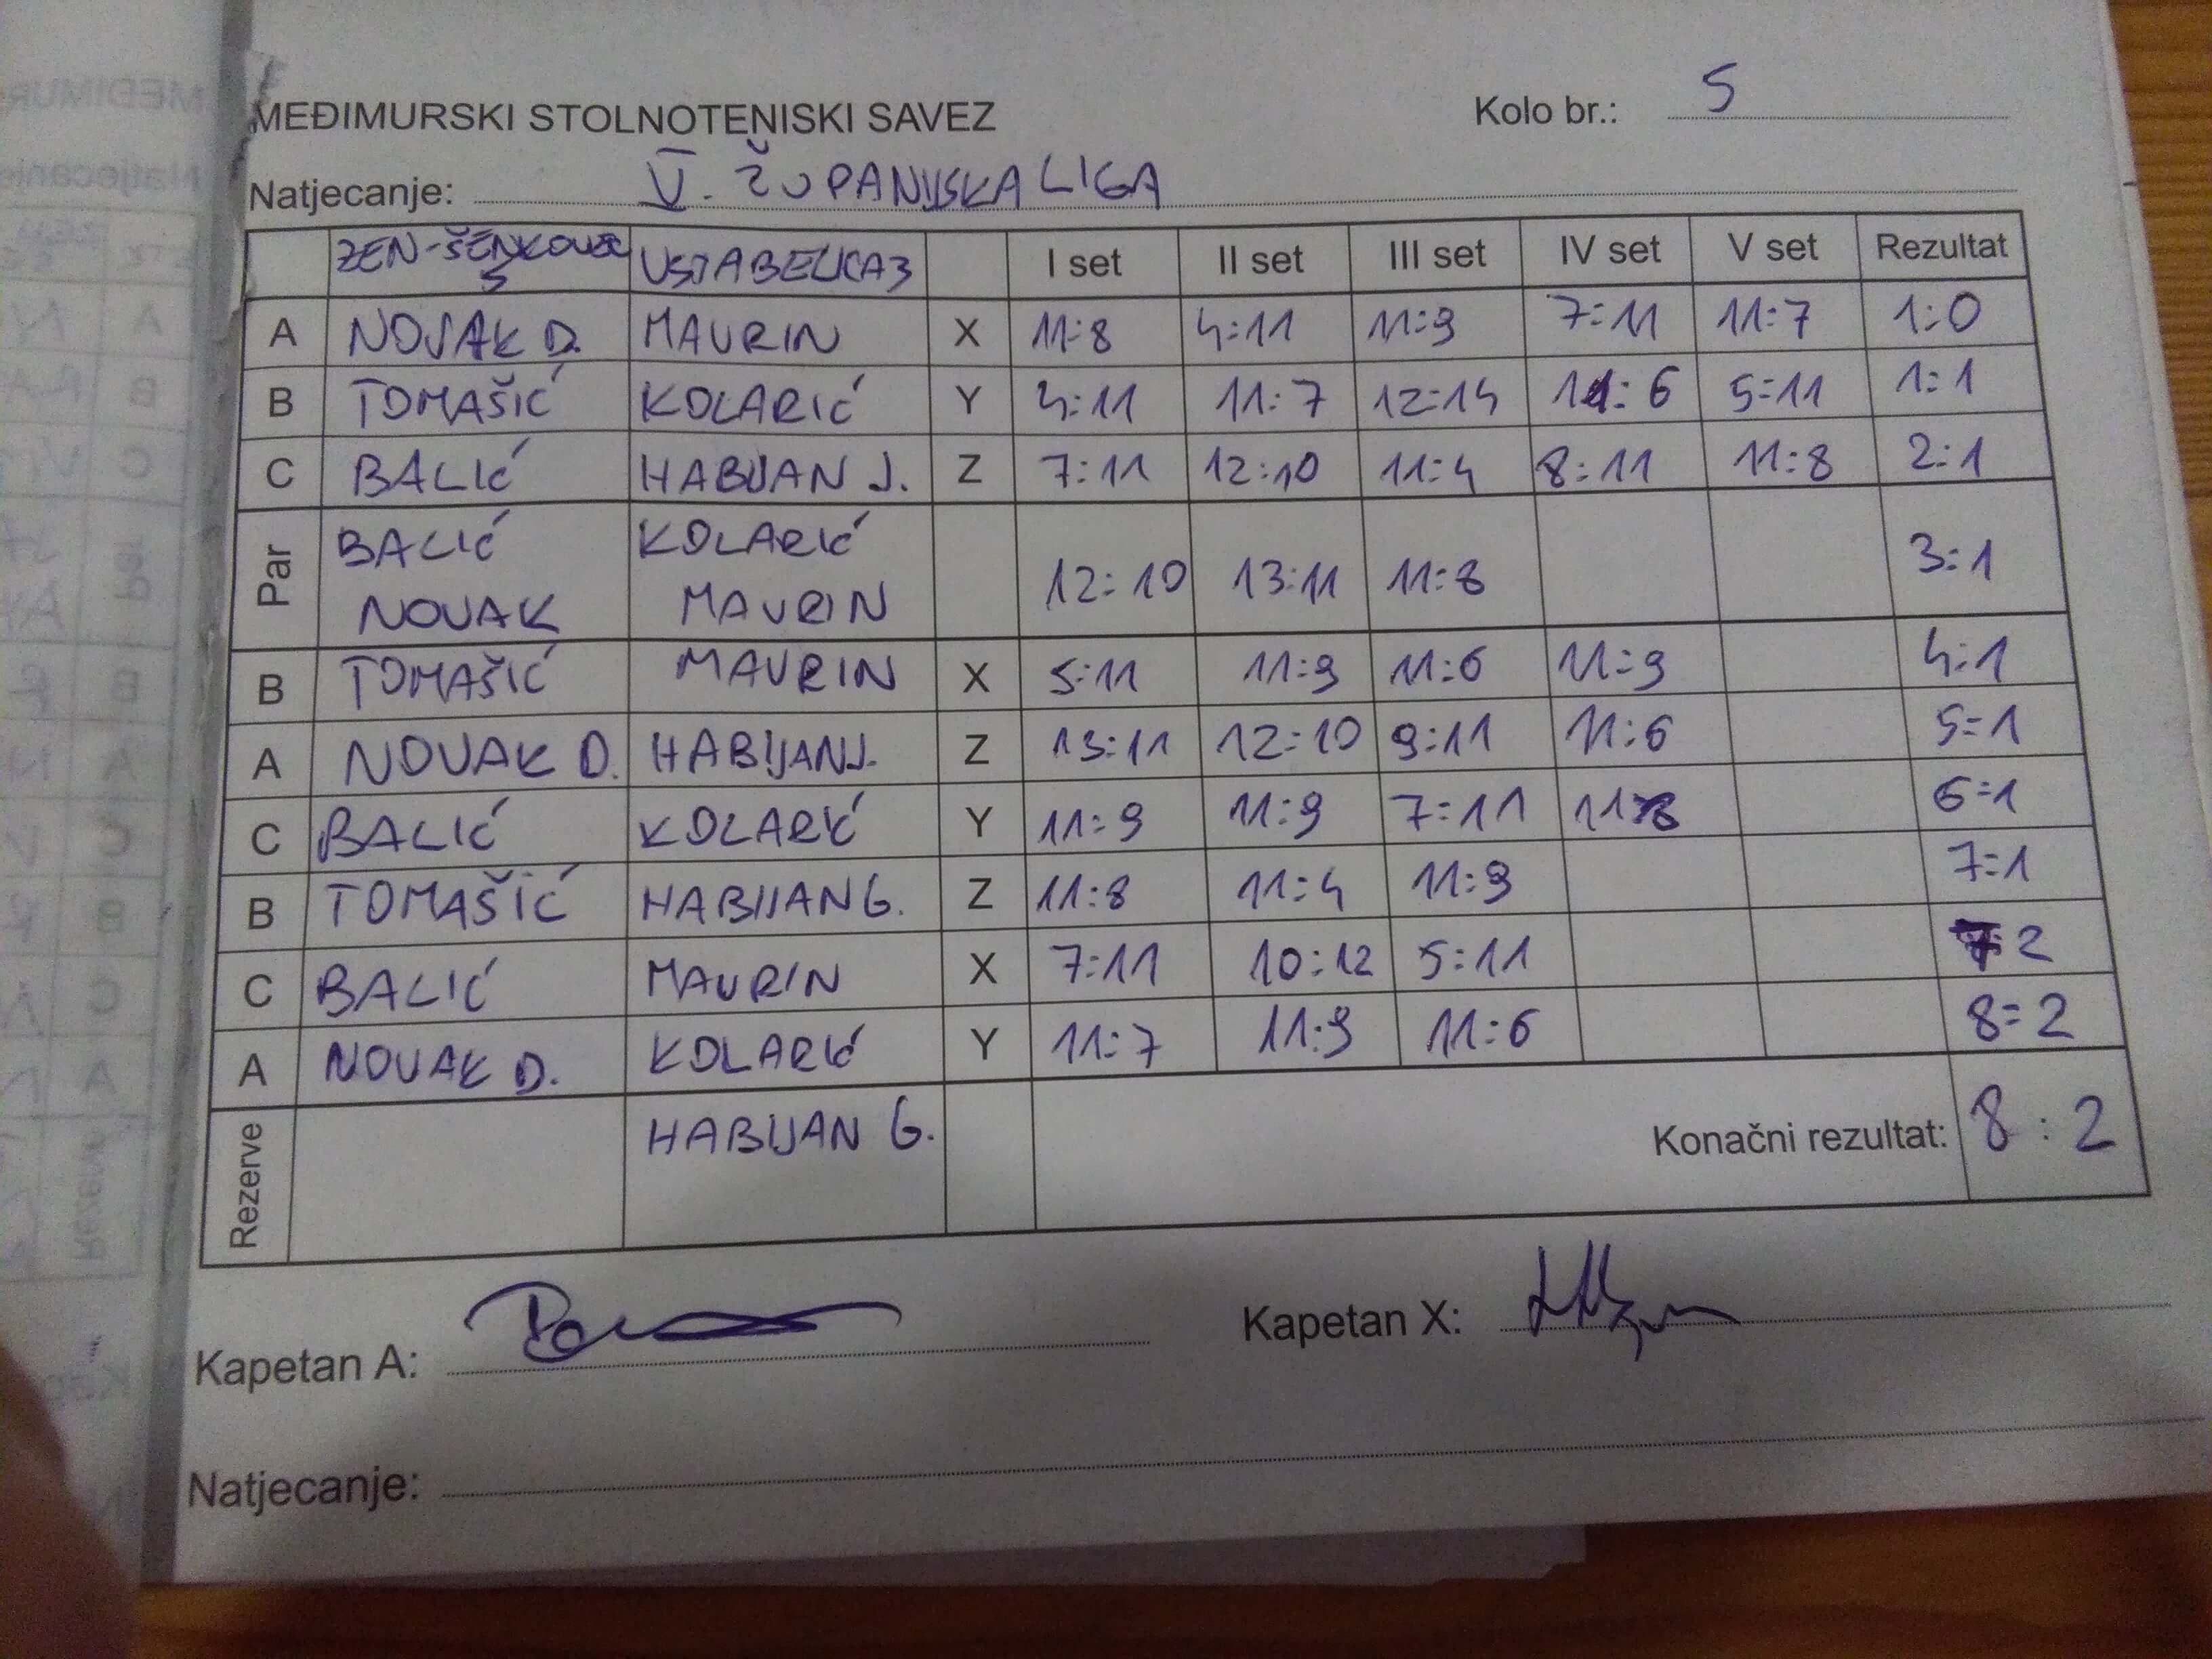 MEĐIMURSKI STOLNOTENISKI SAVEZ Kolo br.: 5
Natjecanje: V. ŽUPANIJSKA LIGA
ZEN-ŠENKOVEC 5 USTABELICA3 I set II set III set IV set V set Rezultat
A NOVAK D. MAURIN X 11:8 4:11 11:9 7:11 11:7 1:0
B TOMAŠIĆ KOLARIĆ Y 4:11 11:7 12:14 11:6 5:11 1:1
C BALIĆ HABIJAN J. Z 7:11 12:10 11:4 8:11 11:8 2:1
Par BALIĆ KOLARIĆ
NOVAK MAURIN 12:10 13:11 11:8 3:1
B TOMAŠIĆ MAURIN X 5:11 11:9 11:6 11:9 4:1
A NOVAK D. HABIJAN J. Z 13:11 12:10 9:11 11:6 5:1
C BALIĆ KOLARIĆ Y 11:9 11:9 7:11 11:8 6:1
B TOMAŠIĆ HABIJAN G. Z 11:8 11:4 11:9 7:1
C BALIĆ MAURIN X 7:11 10:12 5:11 7:2
A NOVAK D. KOLARIĆ Y 11:7 11:9 11:6 8:2
Rezerve HABIJAN G. Konačni rezultat: 8:2
Kapetan A: Kapetan X:
Natjecanje: